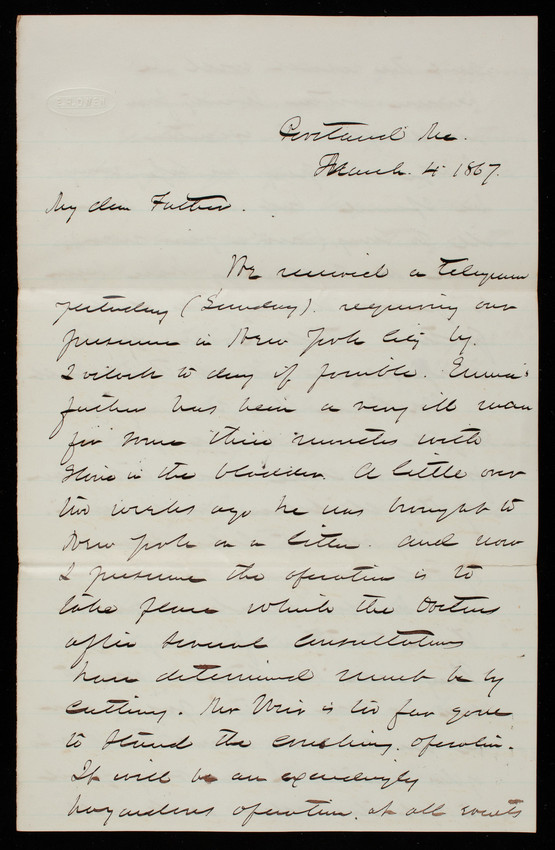 Portland Me.
March. 4 1867.
My dear Father.
We received a telegram
yesterday (Sunday). requiring our
presence in New York City by.
2 o'clock to day if possible. Emma's
father has been a very ill man
for some three months with
Stone in the bladder. A little over
two weeks ago he was brought to
New York on a litter. and now
I presume the operation is to
take place which the Doctors
after several consultations
have determined must be by
cutting. Mr Weir is too far gone
to stand the crushing. operation.
It will be an exceedingly
hazardous operation. at all events